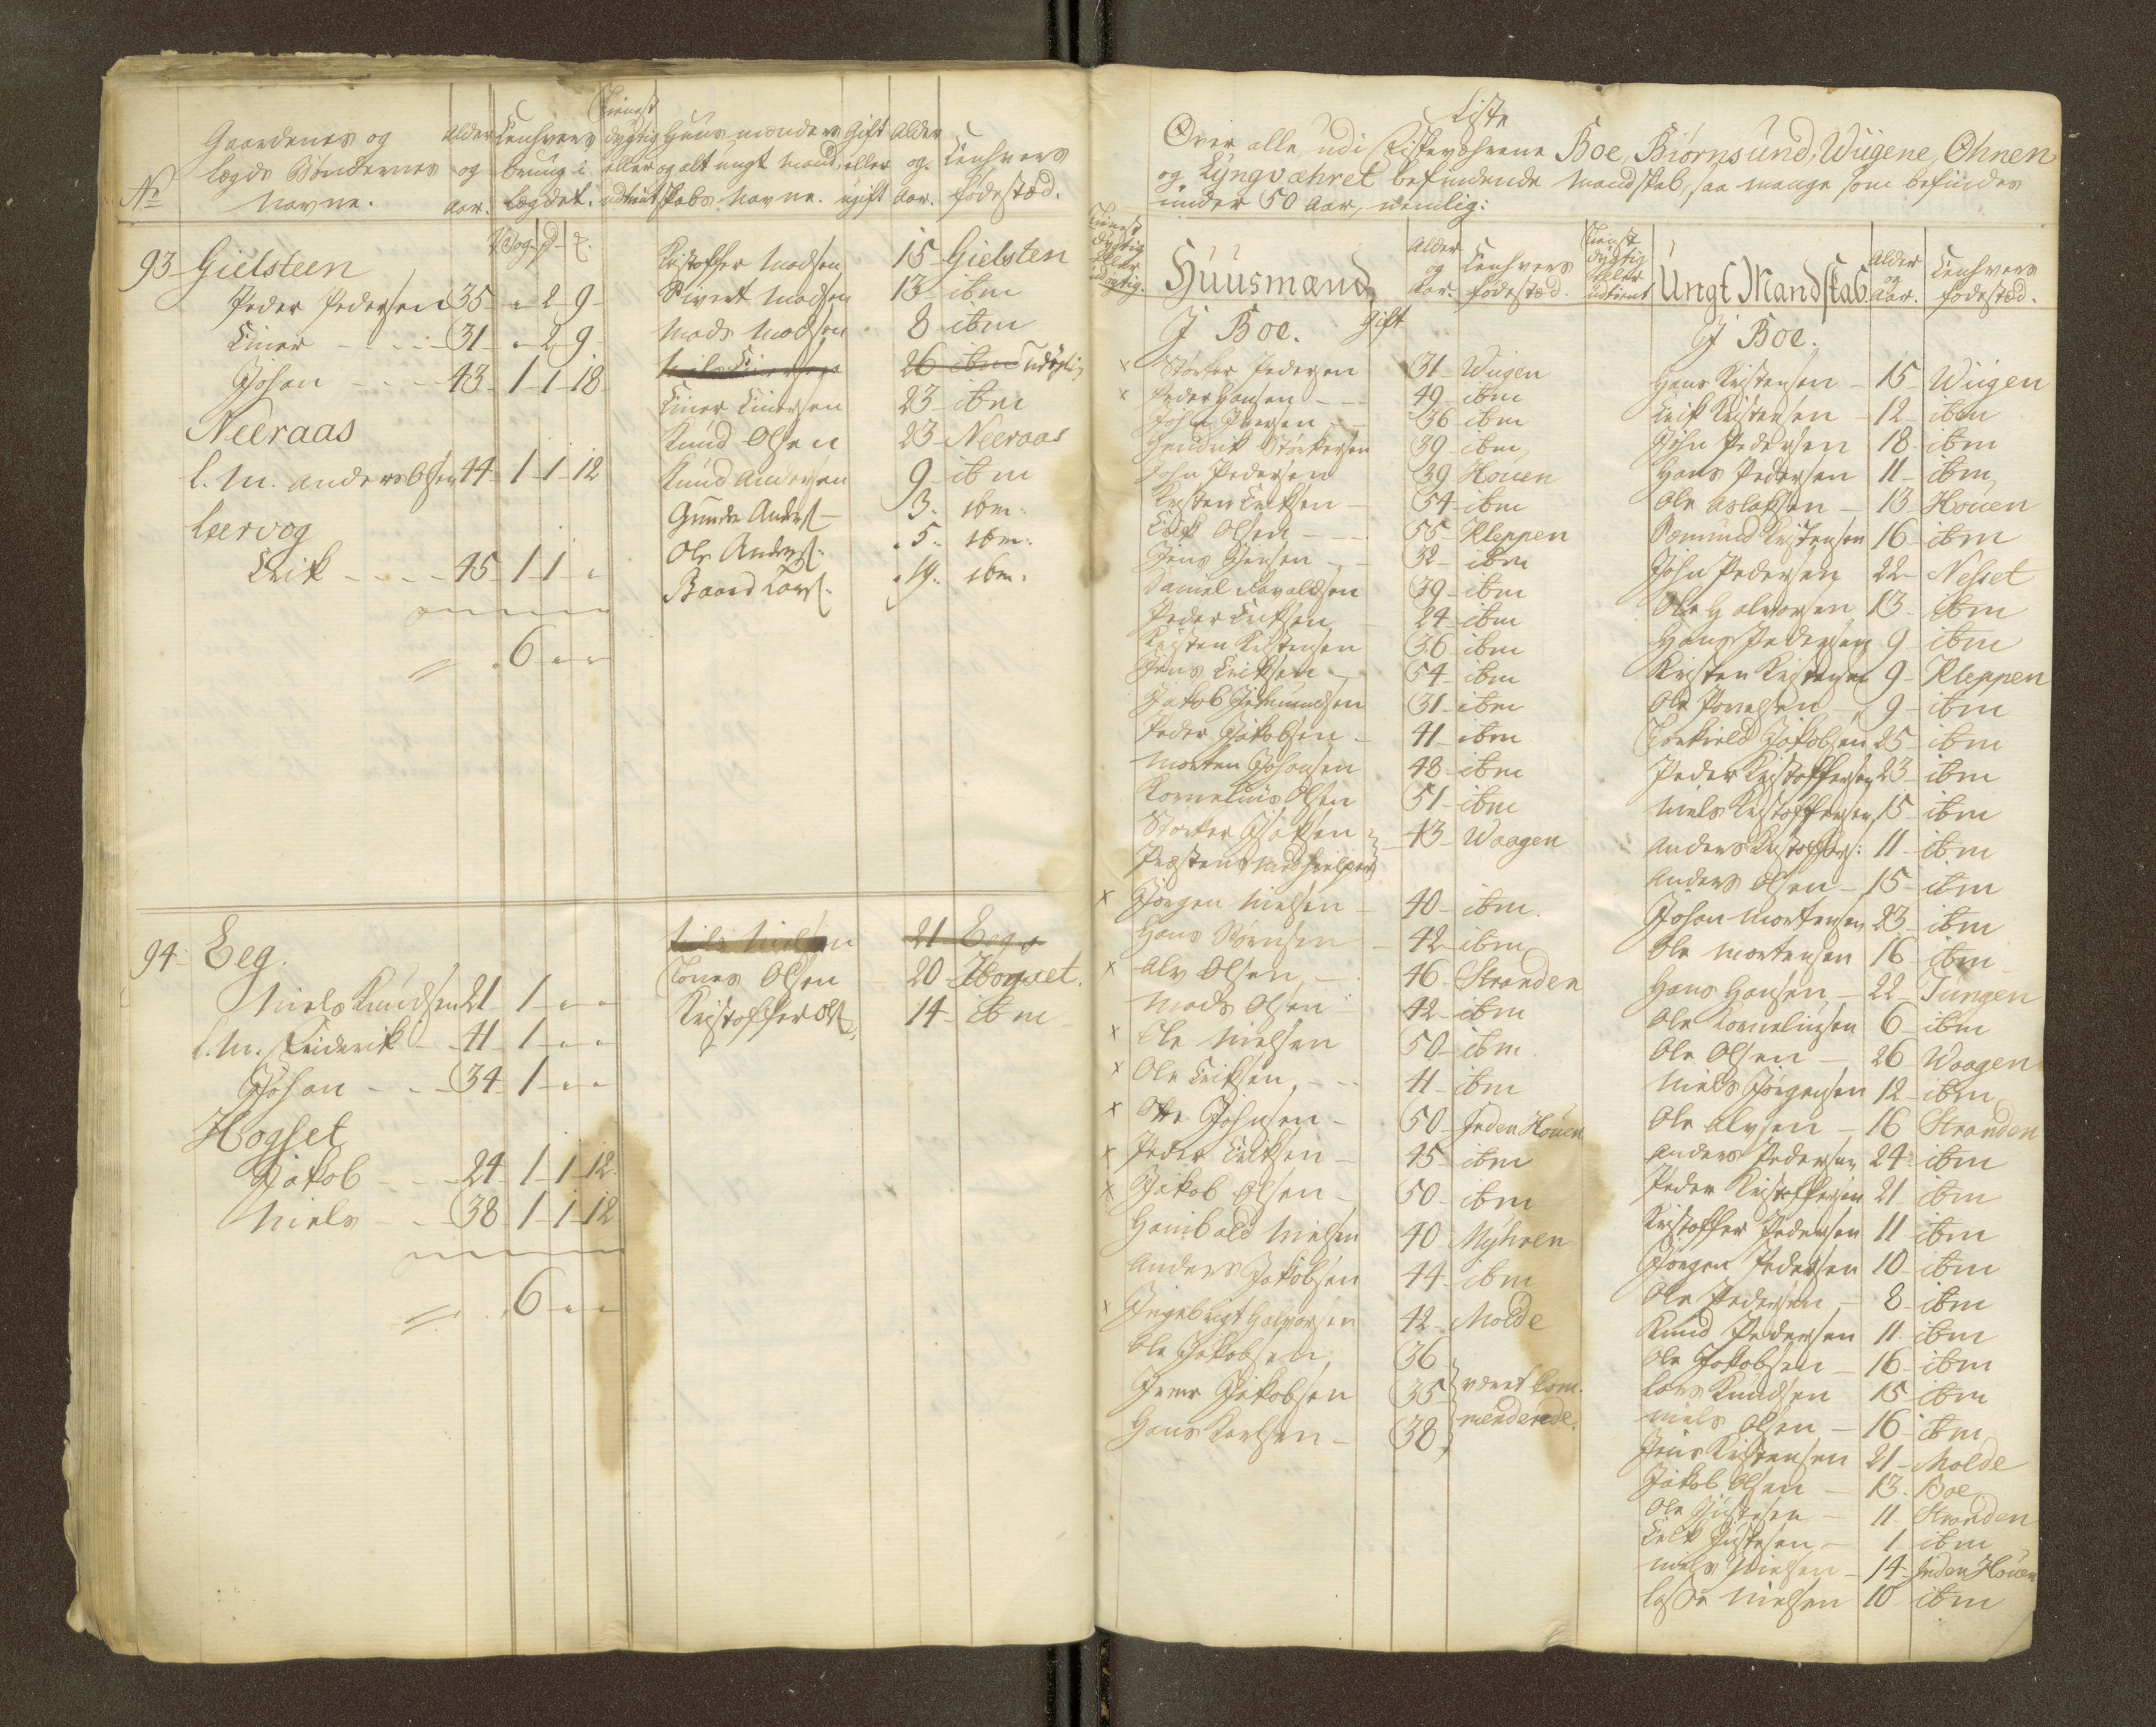 No
Gaardenes og
Lægds Bøndernes
Navne.
Alder
og
Aar.
Eenhvers
brug i
Lægdet.
Tienst
dygtig
eller
udtient
Huusmænders
og alt ungt Mand
skabs Navne.
Gift
eller
ugift
Alder
og
Aar.
Eenhvers
fødestæd.
Vog - p - #.
93 Gielsteen
Peder Pedersen 35 - " 2 - 9 -
Einer - - - - 31 - " 2 - 9 -
Johan - - - 43 - 1 - 1 - 18
Neeraas
l. M. Anders Olsen 44 - 1 - 1 - 12
Leervog
Erik - - - - 45 - 1 - 1 - "
= . 6 - " - "
Kristoffer Madsen 15 - Gielsten
Sivert Madsen 13 - ibm
Mads Madsen 8 - ibm
Niels Einersen 26 - ibm udygtig
Einer Einersen 23 - ibm
Knud Olsen 23 - Neeraas
Knud Andersen 9 - ibm
Gunder Anders - 3. ibm.
Ole Anders: . 5. ibm.
Baard Lars: . 14. ibm.
94 - Eeg.
Niels Knudsen 21 - 1 - " - "
l. M. Friderik - - 41 - 1 - " - "
Johan - - - 34 - 1 - " - "
Hogset
Jakob - - - 24 - 1 - 1 - 12
Niels - - - 38 - 1 - 1 - 12
= . 6 - " - "
Nils Nielsen 21 - Eeg
Jonas Olsen 20 - Hogset.
Kristoffer Ols 14 - ibm
Liste
Over alle udi Fiskevæhrene Boe, Biørnsund, Wügene, Ohnen
og Lyngvæhret befindende Mandskab, saa mange som befindes
under 50 Aar, nemlig:
Tienst
dygtig
eller
udygtig.
Huusmænd
Alder
og
Aar.
Eenhvers
fødestæd.
Tienst
dygtig
eller
udtient
Ungt Mandskab
Alder
og
Aar.
Eenhvers
fødestæd.
J Boe. Gift
x Størker Pedersen 31 - Wügen
x Peder Hansen - - 49 - ibm
John Iversen - 36 ibm
Hendrik Størkersen 39 - ibm
John Pedersen 39 Houen
Kristen Eriksen - 54 - ibm
Erik Olsen - - - 55 - Kleppen
Jens Jensen - - 32 - ibm
Daniel 39 - ibm
Peder Eriksen - 24 - ibm
Kristen Kristensen 36 - ibm
Jens Eriksen - 54 - ibm
Jakob 31 - ibm
Peder Jakobsen - 41 - ibm
Morten Johansen 48 - ibm
Kornelius Olsen 51 - ibm
Størker 43 - Waagen
Præstens Medhielper
x Jørgen Nielsen - 40 - ibm.
Hans Sørensen - 42 - ibm
x Alv Olsen - 46 - Stranden
Mads Olsen - 42 - ibm
x Ole Nielsen 50 - ibm.
x Ole Eriksen - - 41 - ibm
x Otte Johnsen - 50 - Inden Houen
x Peder Eriksen - 45 - ibm
x Jakob Olsen - 50 - ibm
Hanibald Nielsen 40 Myhren
Anders Jakobsen 44 - ibm
x Ingebrigt Halvorsen 42 - Molde
Ole Jakobsen 36
Jens Jakobsen 35
Hans Karlsen - 38
været kom-
menderede.
J Boe.
Hans Kristensen - 15 - Wügen
Erik Kristensen - 12 - ibm
John Pedersen - 18 - ibm
Hans Pedersen 11 - ibm
Ole Aslaksen - 13 - Houen
Sæmund Kristensen 16 - ibm
John Pedersen 22 - Nesset
Ole Halvorsen 13 - ibm
Hans Pedersen 9 - ibm
Kristen Kristensen 9 - Kleppen
Ole Povelsen - 9 - ibm
Torkield Jakobsen 25 - ibm
Peder Kristoffersen 23 - ibm
Niels Kristoffersen 15 - ibm
Anders Kristoffers: 11 - ibm
Anders Olsen - 15 - ibm
Johan Mortensen 23 - ibm
Ole Mortensen 16 - ibm
Hans Hansen - 22 - Tungen
Ole Korneliusen 6 - ibm
Ole Olsen - 26 - Waagen
Niels Jørgensen 12 - ibm
Ole Alvsen - 16 Stranden
Anders Pedersen 24 ibm
Peder Kristoffersen 21 ibm
Kristoffer Pedersen 11 ibm
Jørgen Pedersen 10 - ibm
Ole Pedersen - 8 - ibm
Knud Pedersen 11 - ibm
Ole Jakobsen - 16 - ibm
Lars Knudsen 15 - ibm
Niels Olsen - 16 - ibm
Jens Kristensen 21 - Molde
Jakob Olsen - 13 - Boe
Ole Justesen - 11 - Stranden
Erik Justesen - 1 ibm
Niels Nielsen - 14 - Inden Houen
Lasse Nielsen 10 - ibm